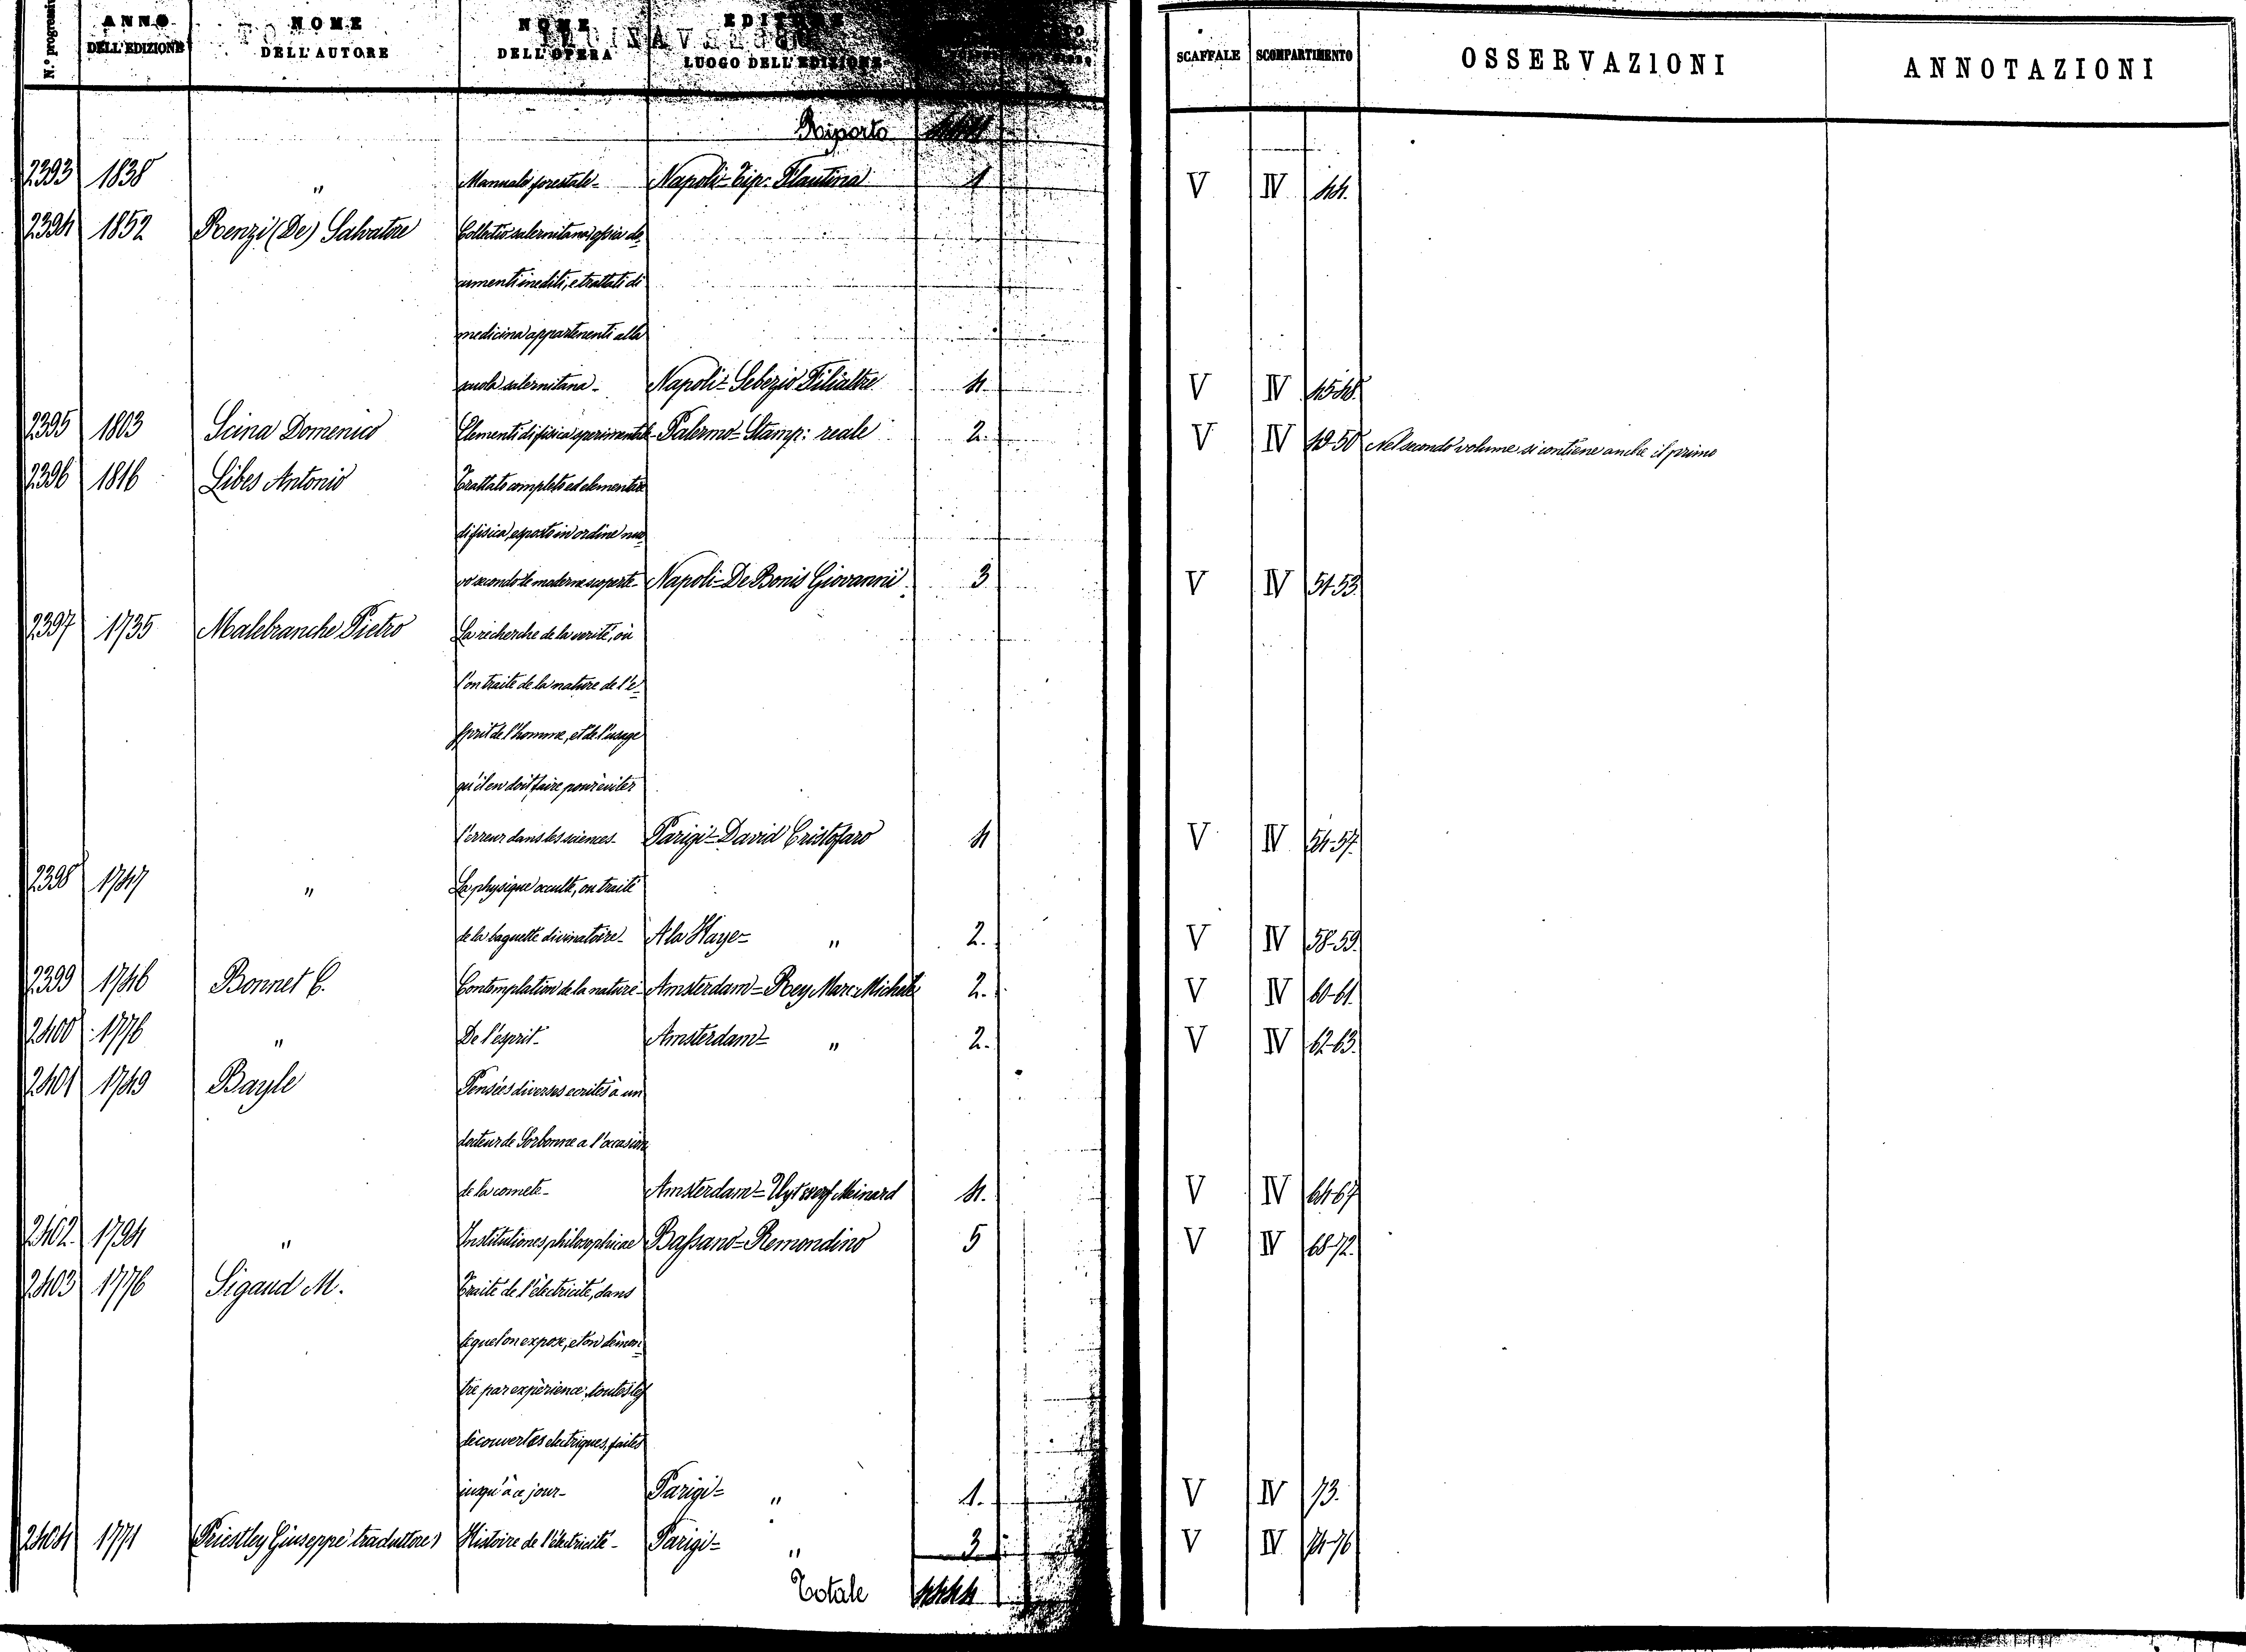 N.° progressi ANNO DELL'EDIZIONE NOME DELL'AUTORE NOME DELL'OPERA EDITORE LUOGO DELL'EDIZIONE SCAFFALE SCOMPARTIMENTO OSSERVAZIONI ANNOTAZIONI
Riporto
2393 1838 " Manuale forestale- Napoli= Tip: Plautina 1 V IV 44.
2394 1852 Renzi (De) Salvatore Collectio salernitana, ossia do=
cumenti inediti, e trattati di
medicina appartenenti alla
scuola salernitana- Napoli= Sebezio Filialtre 4. V IV 45-48.
2395 1803 Scina Domenico Elementi di fisica sperimentale- Palermo= Stamp: reale 2. V IV 49-50 Nel secondo volume si contiene anche il primo
2396 1816 Libes Antonio Trattato completo ed elementare
di fisica, esposto in ordine nuo
vo secondo le moderne scoperte- Napoli= De Bonis Giovanni 3 V IV 51-53.
2397 1735 Malebranche Pietro La recherche de la verité, où
l'on traite de la nature de l'e=
sprit de l'homme, et de l'usage
qu'il en doit faire pour éviter
l'erreur dans les sciences- Parigi= David Cristofaro 4 V IV 54-57.
2398 1747 " La physique occulte, ou traité
de la baguette divinatoire- A la Haye= " 2. V IV 58-59.
2399 1746 Bonnet C. Contemplation de la nature- Amsterdam= Rey Marc Michele 2. V IV 60-61.
2400 1776 " De l'esprit- Amsterdam= " 2. V IV 62-63.
2401 1749 Bayle Pensées diverses ecrites à un
docteur de Sorbonne a l'occasion
de la comete- Amsterdam= Uytwerf Meinard 4. V IV 64-67
2402 1794 " Institutiones philosophicae Bassano= Remondino 5 V IV 68-72.
2403 1776 Sigaud M. Traité de l'électricité, dans
lequel on expose, et on démon=
tre par expérience toutes les
découvertes electriques, faites
jusqu'à ce jour- Parigi= " 1. V IV 73.
2404 1771 (Priestley Giuseppe traduttore) Histoire de l'électricité- Parigi= " 3 V IV 74-76
Totale 4444